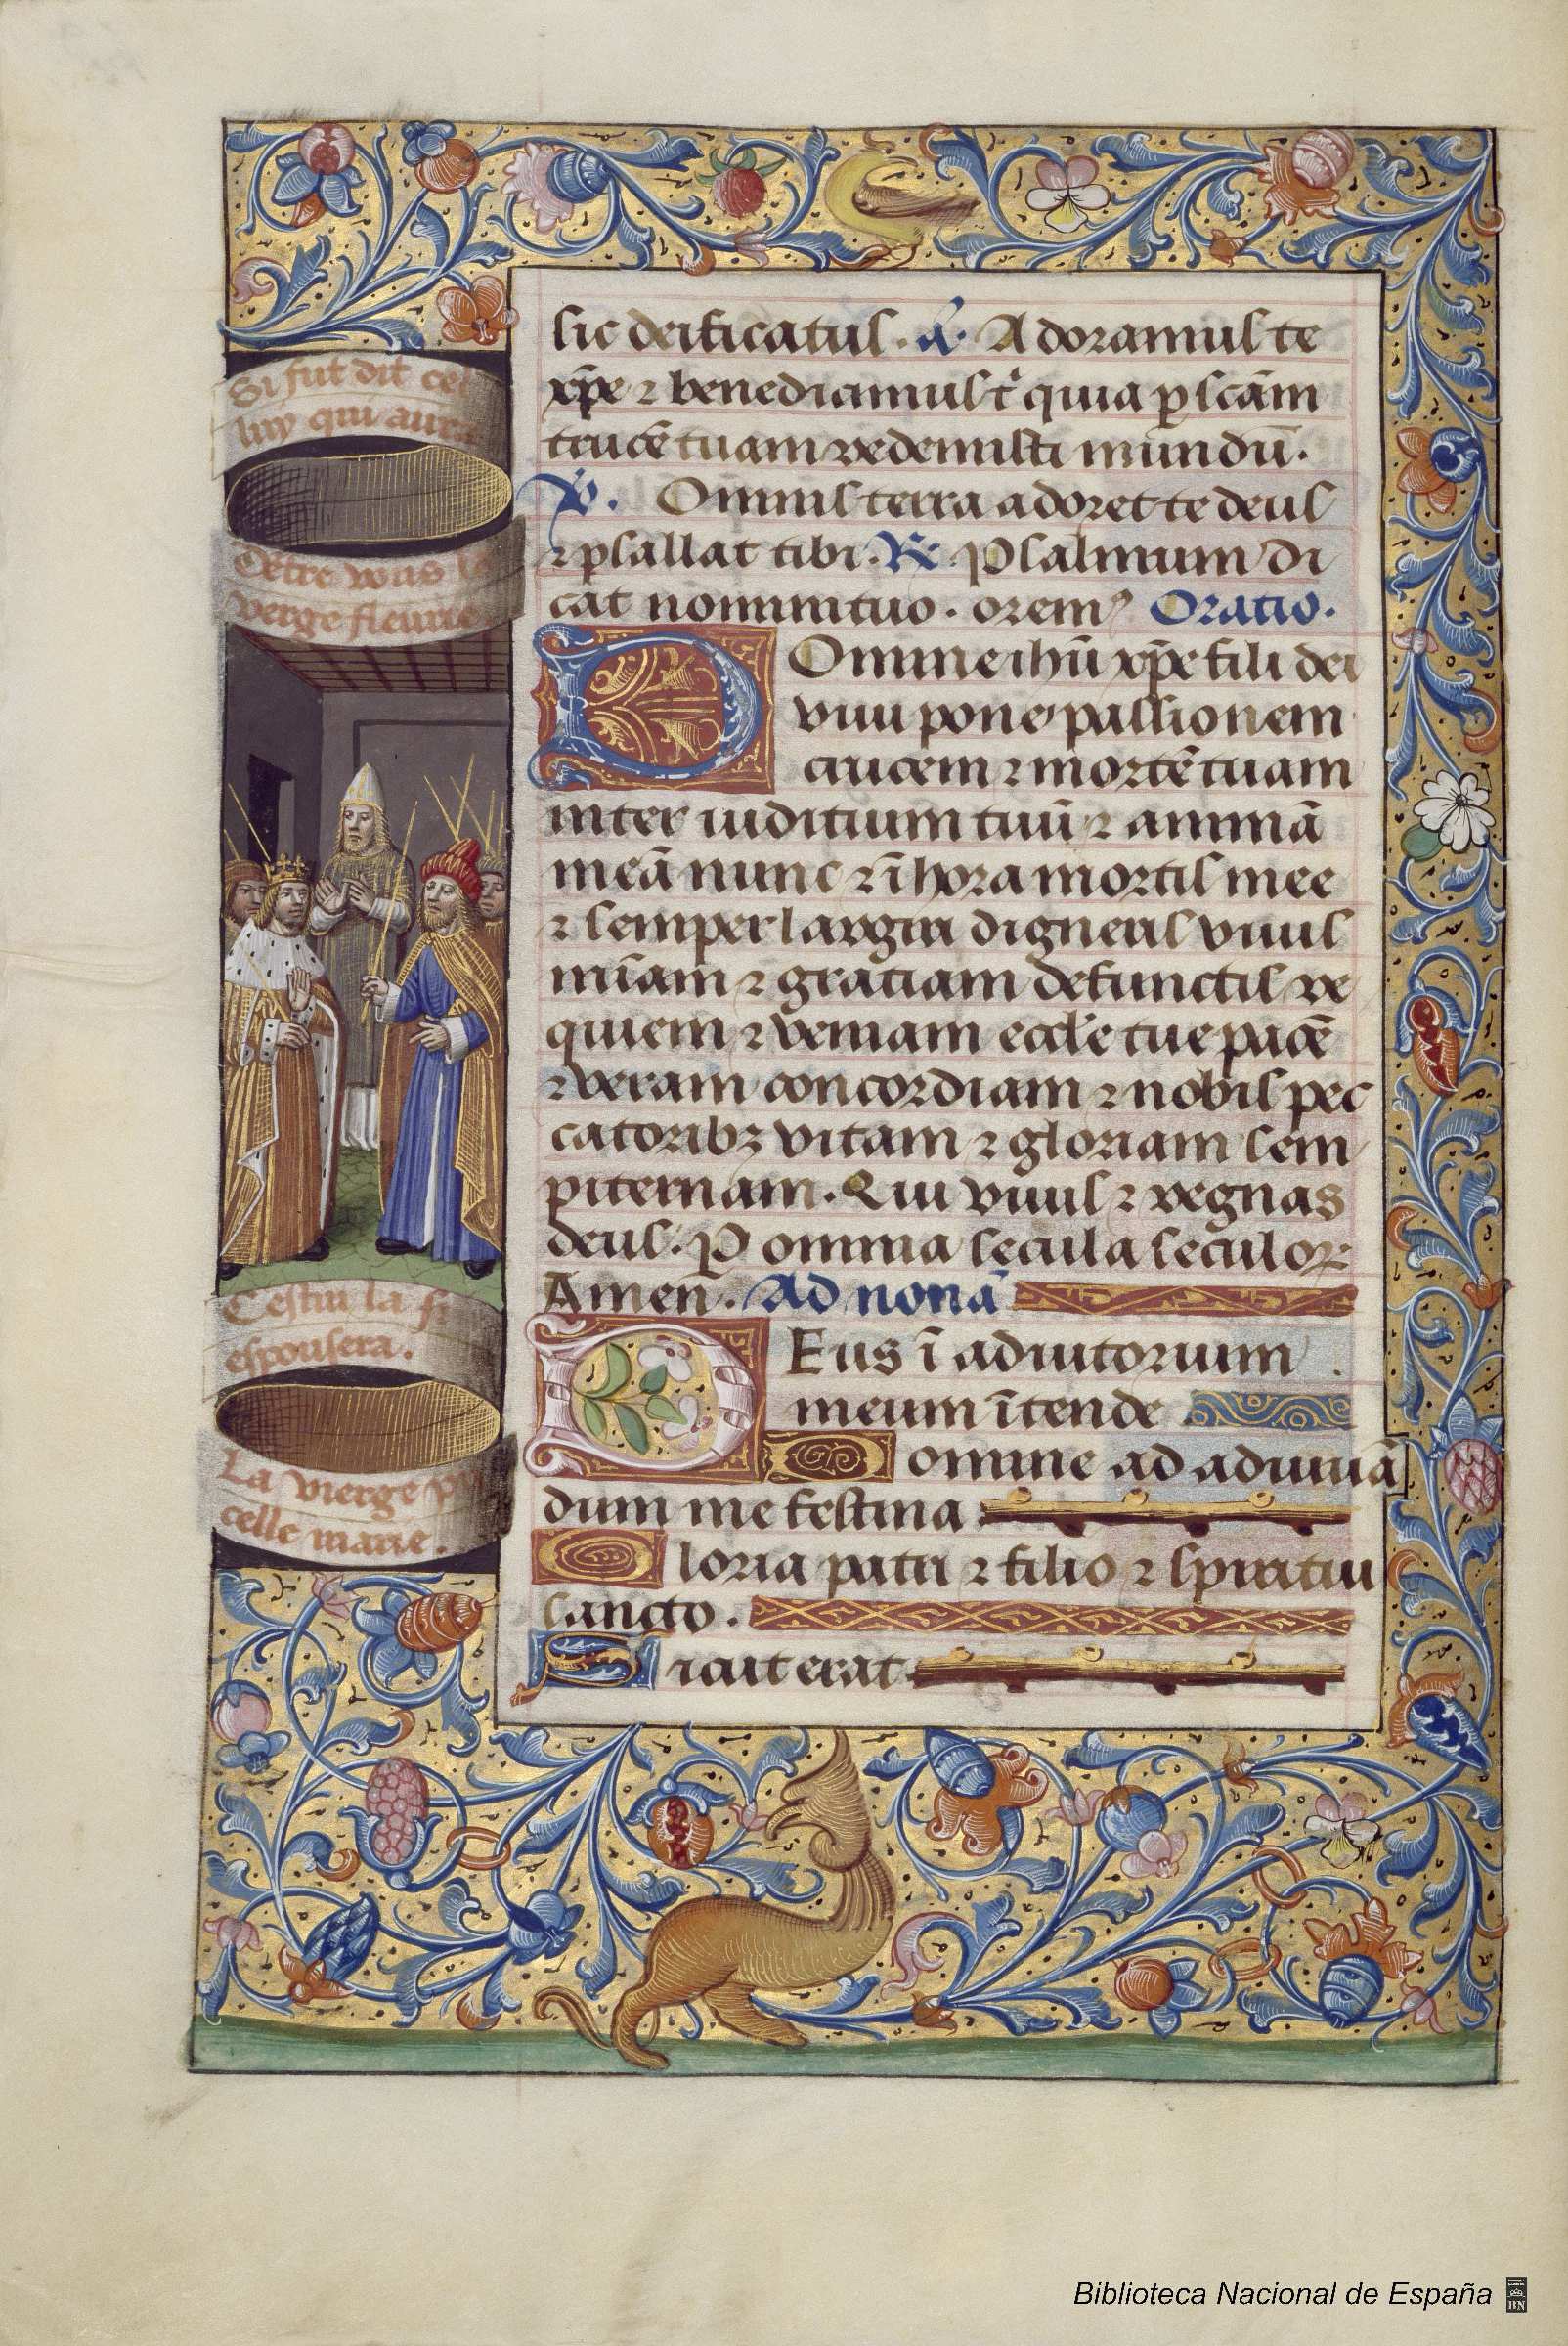 Si fut dit cel
luy qui aura
Detre vous la
verge fleurie
Cestui la si
espousera.
La vierge pu
celle marie.
sic deificatus. a. Adoramus te
xp̄e ⁊ benedicimus t̓ quia ꝑ scām
crucē tuam redemisti mundū.
V. Omnis terra adoret te deus
⁊ psallat tibi. R. Psalmum di
cat nomini tuo. orem Oratio.
Domine ihū xp̄e fili dei
viui pone passionem
crucem ⁊ mortē tuam
inter iuditium tuū ⁊ animā
meā nunc ⁊ ī hora mortis mee
⁊ semper largiri digneris viuis
mīam ⁊ gratiam defunctis re
quiem ⁊ veniam eccl̄e tue pacē
⁊ veram concordiam ⁊ nobis pec
catoribꝫ vitam ⁊ gloriam sem
piternam. Qui viuis ⁊ regnas
deus. P omnia secula seculoꝝ
Amen. Ad nonā
DEus ī adiutorium
meum ītende
omine ad adiuuā
dum me festina
loria patri ⁊ filio ⁊ spiritui
sancto.
Sicut erat
Biblioteca Nacional de España
BN